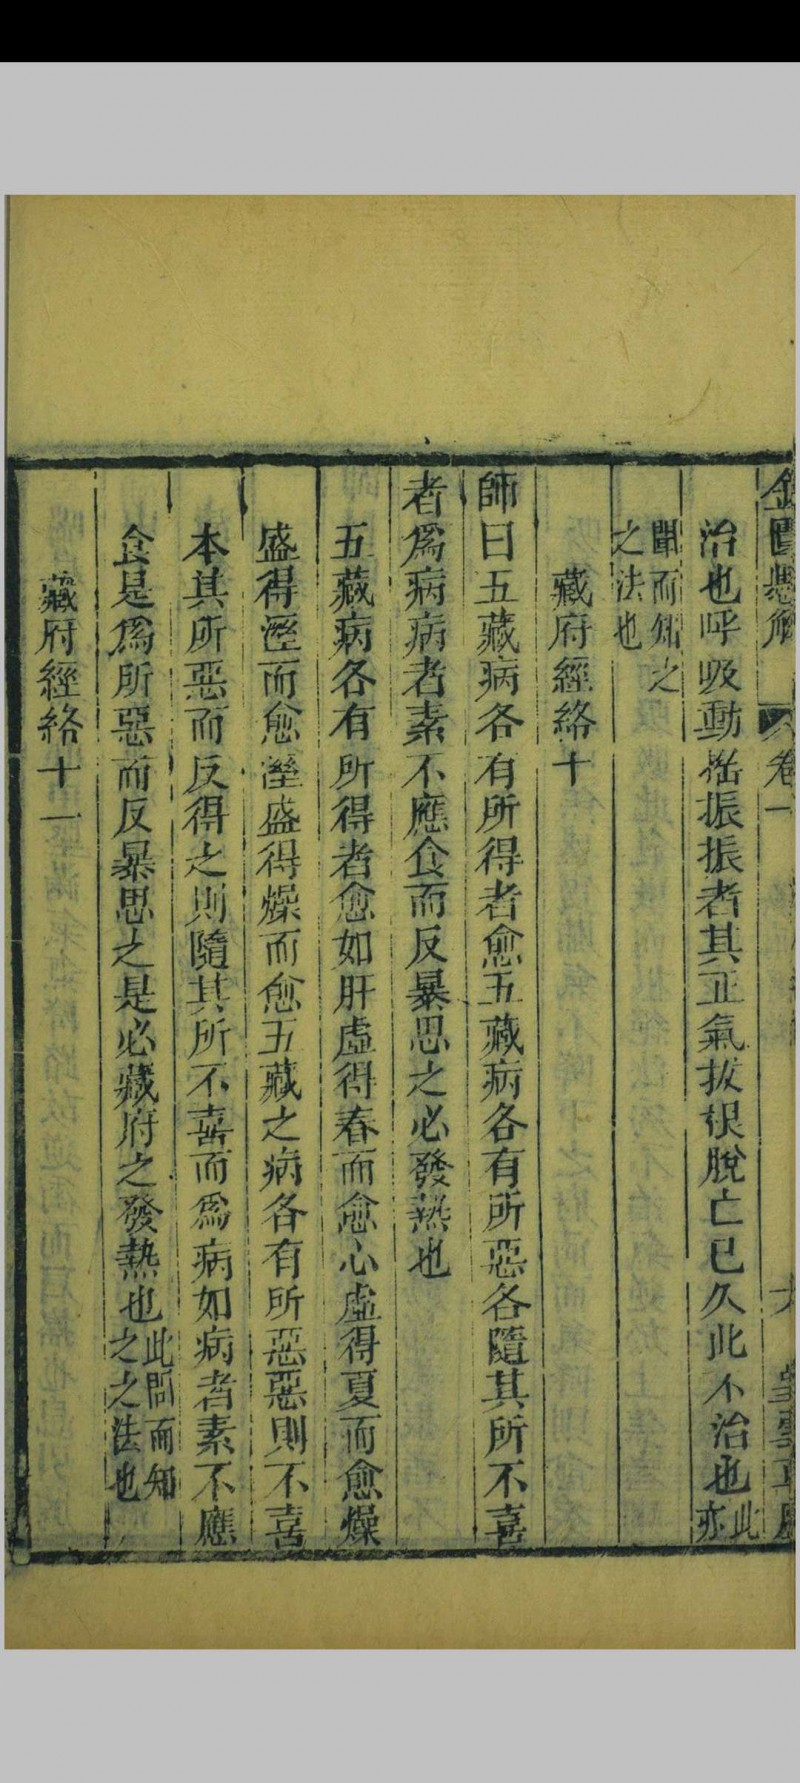 金匱懸解 卷一
治也呼吸動搖振振者其正氣拔根脫亡已久此不治也此亦
聞而知之
之法也
藏府經絡十
師曰五藏病各有所得者愈五藏病各有所惡各隨其所不喜
者爲病病者素不應食而反暴思之必發熱也
五藏病各有所得者愈如肝虛得春而愈心虛得夏而愈燥
盛得溼而愈溼盛得燥而愈五藏之病各有所惡惡則不喜
本其所惡而反得之則隨其所不喜而爲病如病者素不應
食是爲所惡而反暴思之是必藏府之發熱也此問而知之之法也
藏府經絡十一